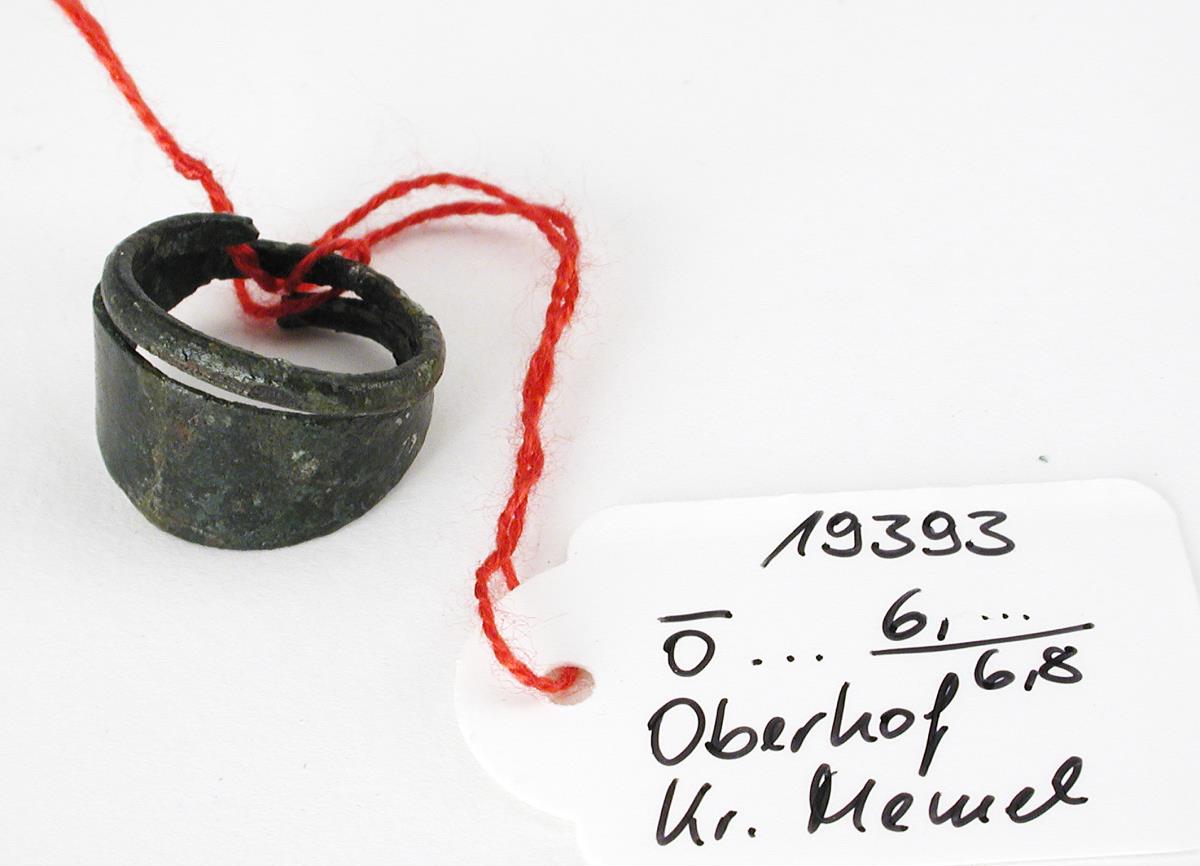 19393
O̅ ... 6, ...
6,8
Oberhof
Kr. Memel